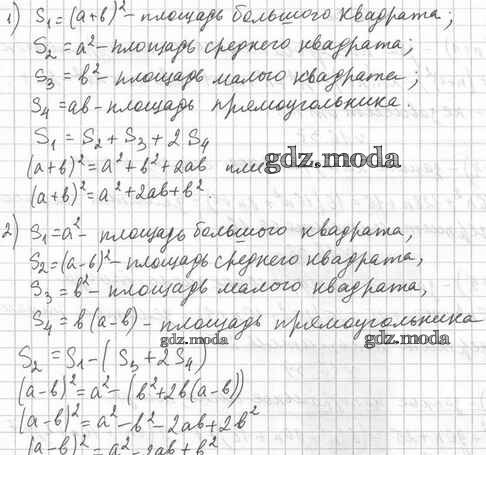 1) S₁ = (a+b)² - площадь большого квадрата;
S₂ = a² - площадь среднего квадрата;
S₃ = b² - площадь малого квадрата;
S₄ = ab - площадь прямоугольника.
S₁ = S₂ + S₃ + 2S₄
(a+b)² = a² + b² + 2ab
gdz.moda
(a+b)² = a² + 2ab + b².
2) S₁ = a² - площадь большого квадрата,
S₂ = (a-b)² - площадь среднего квадрата,
S₃ = b² - площадь малого квадрата,
S₄ = b(a-b) - площадь прямоугольника
gdz.moda gdz.moda
S₂ = S₁ - (S₃ + 2S₄)
(a-b)² = a² - (b² + 2b(a-b))
(a-b)² = a² - b² - 2ab + 2b²
(a-b)² = a² - 2ab + b²